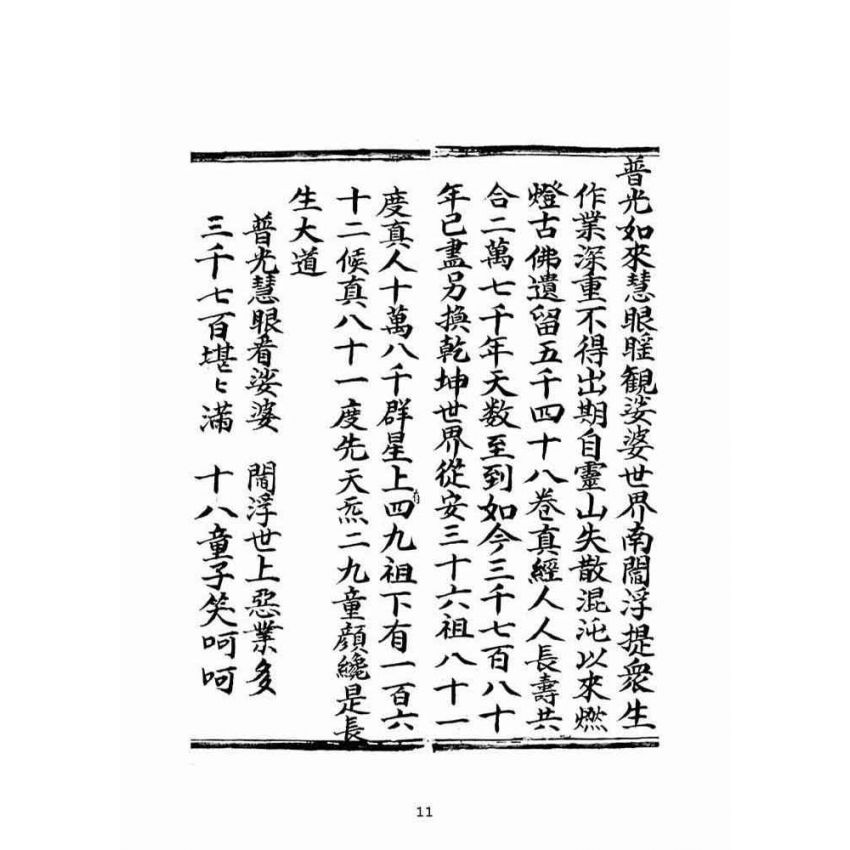 普光如來慧眼睚觀娑婆世界南閻浮提衆生
作業深重不得出期自靈山失散混沌以來燃
燈古佛遺留五千四十八卷真經人人長壽共
合二萬七千年天数至到如今三千七百八十
年已盡另換乾坤世界從安三十六祖八十一
度真人十萬八千群星上有四九祖下有一百六
十二候真八十一度先天炁二九童顔纔是長
生大道
普光慧眼看娑婆 閻浮世上惡業多
三千七百堪堪滿 十八童子笑呵呵
11